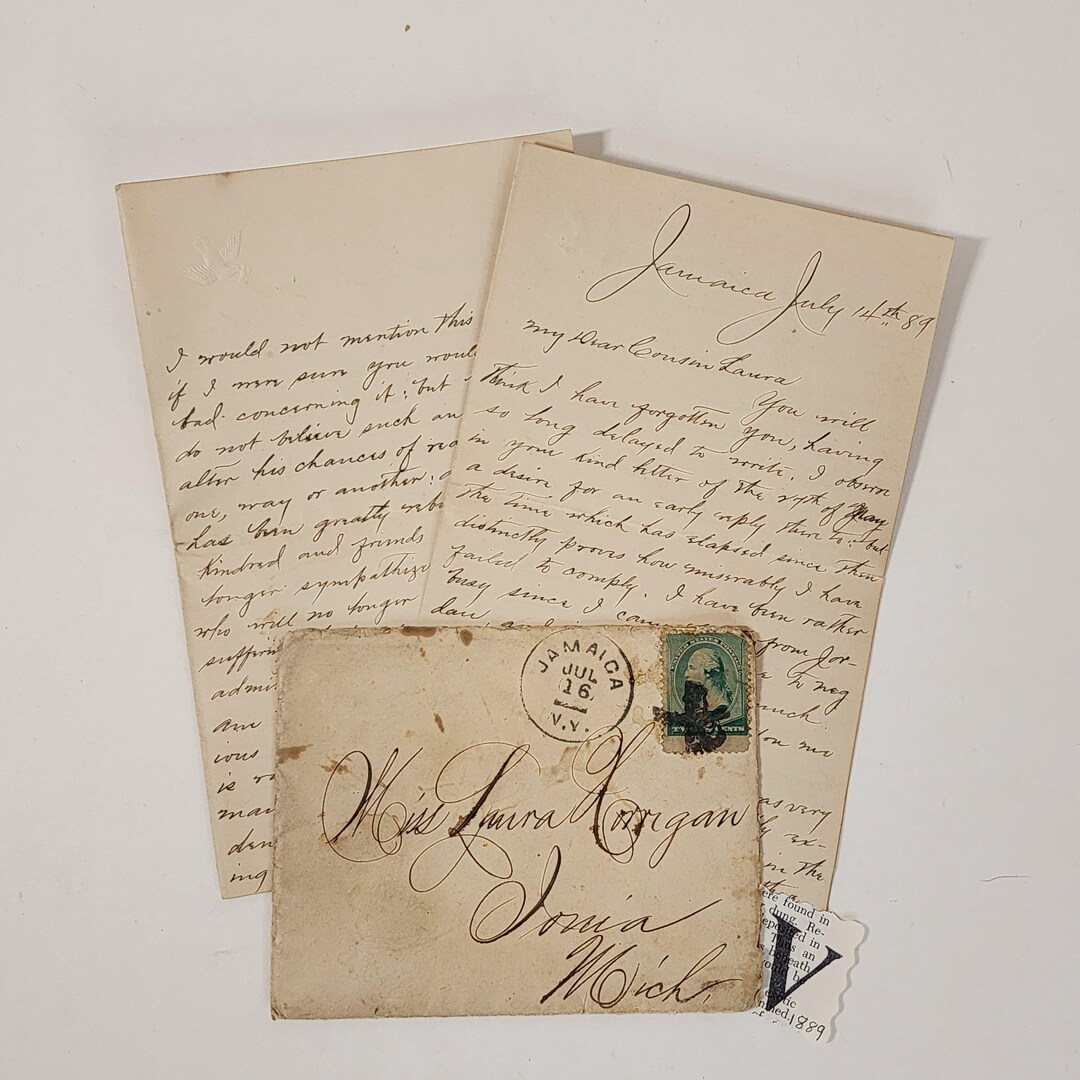 I would not mention this
if I were sure you would
bad concerning it; but
do not believe such an
alter his chances of
one, way or another;
has been greatly
kindred and friends
longer sympathize
who will no longer
suffering
am
ious
is
ing
Jamaica July 14th 89
My Dear Cousin Laura
You will
think I have forgotten you, having
so long delayed to write. I observe
in your kind letter of the 27th of May
a desire for an early reply there to: but
the time which has elapsed since then
distinctly proves how miserably I have
failed to comply. I have been rather
busy since I came from Jor-
dan, and
to neg
much
me
as very
ex-
in the
JAMAICA
JUL
16
N.Y.
UNITED STATES POSTAGE
TWO CENTS
Miss Laura Korrigan
Ionia
Mich.
ere found in
dung. Re-
eposited in
Thus an
beneath
V
1889